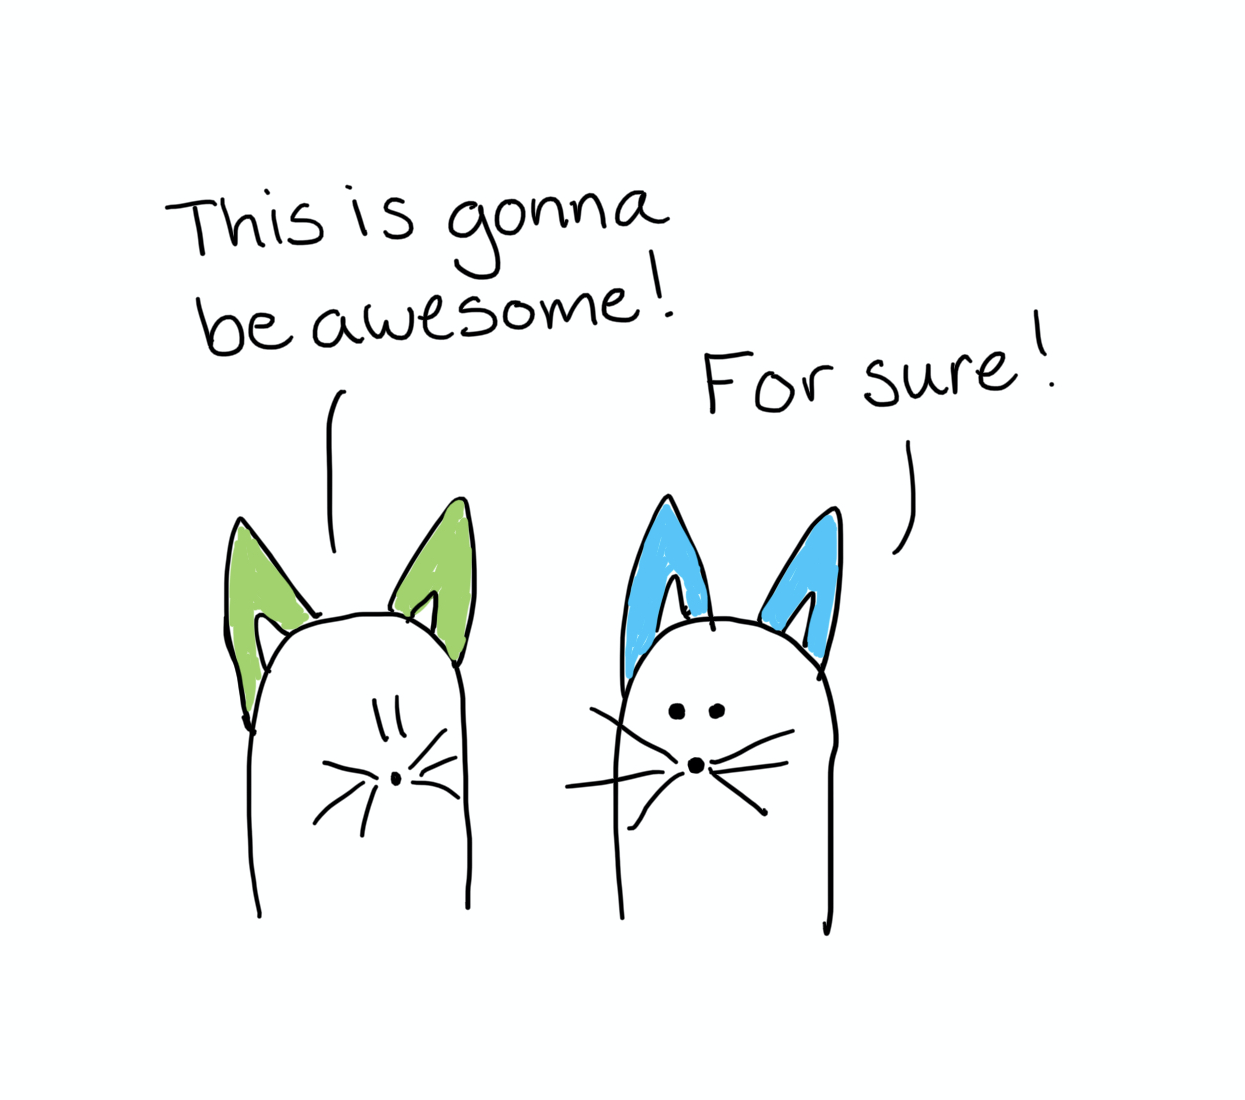 This is gonna
be awesome!
For sure!